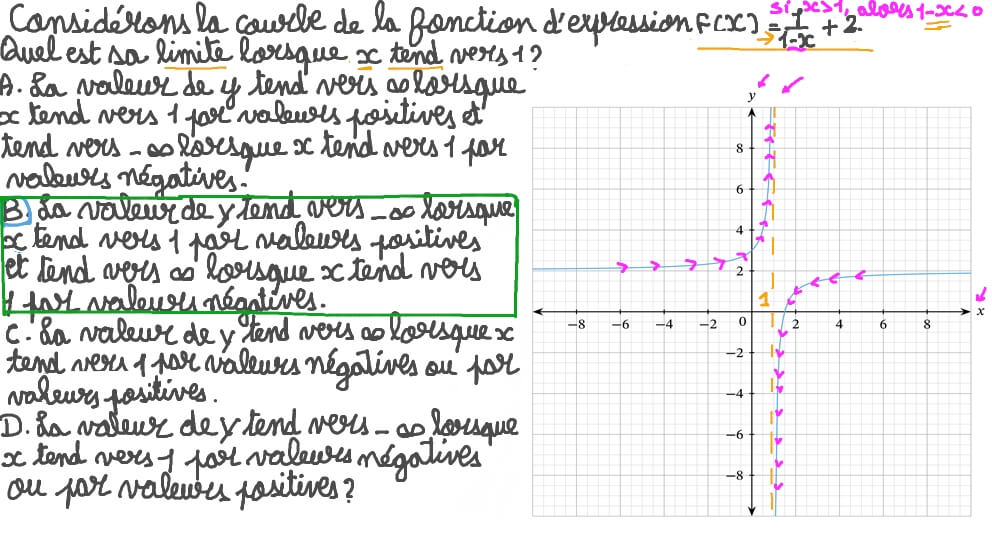 Considérons la courbe de la fonction d'expression F(x) = 1/(1-x) + 2.
si x>1, alors 1-x<0
Quel est sa limite lorsque x tend vers 1?
A. La valeur de y tend vers ∞ lorsque
x tend vers 1 par valeurs positives et
tend vers -∞ lorsque x tend vers 1 par
valeurs négatives.
B. La valeur de y tend vers -∞ lorsque
x tend vers 1 par valeurs positives
et tend vers ∞ lorsque x tend vers
1 par valeurs négatives.
C. La valeur de y tend vers ∞ lorsque x
tend vers 1 par valeurs négatives ou par
valeurs positives.
D. La valeur de y tend vers -∞ lorsque
x tend vers 1 par valeurs négatives
ou par valeurs positives?
y
8
6
4
2
1
x
-8 -6 -4 -2 0 2 4 6 8
-2
-4
-6
-8